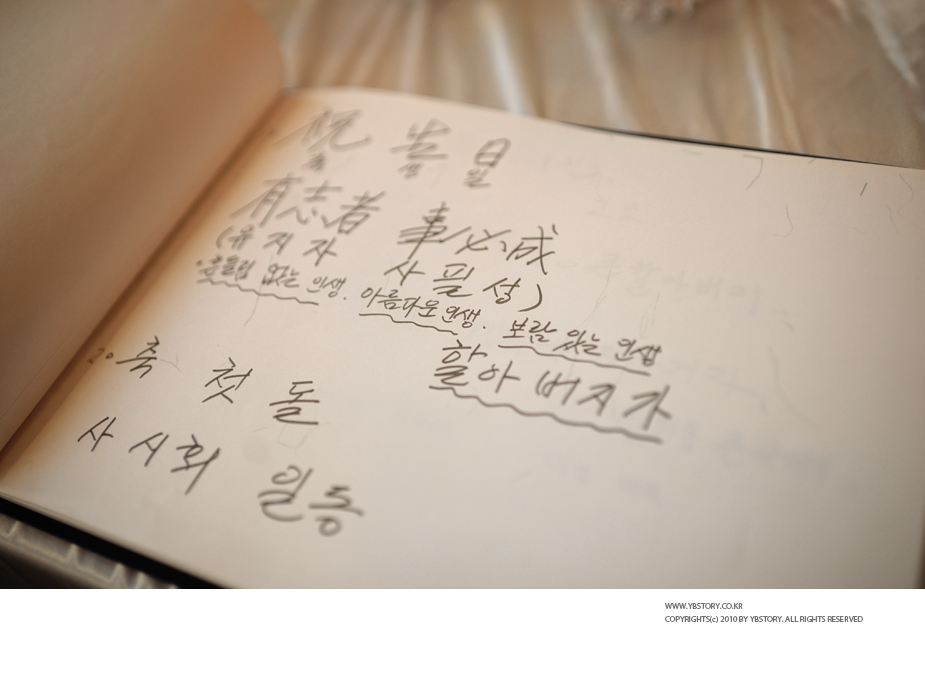 祝 生 日
축 생 일
有志者 事必成
(유지자 사필성)
흔들림 없는 인생. 아름다운 인생. 보람 있는 인생
할아버지가
축 첫 돌
사시회 일동
WWW.YBSTORY.CO.KR
COPYRIGHTS(c) 2010 BY YBSTORY. ALL RIGHTS RESERVED